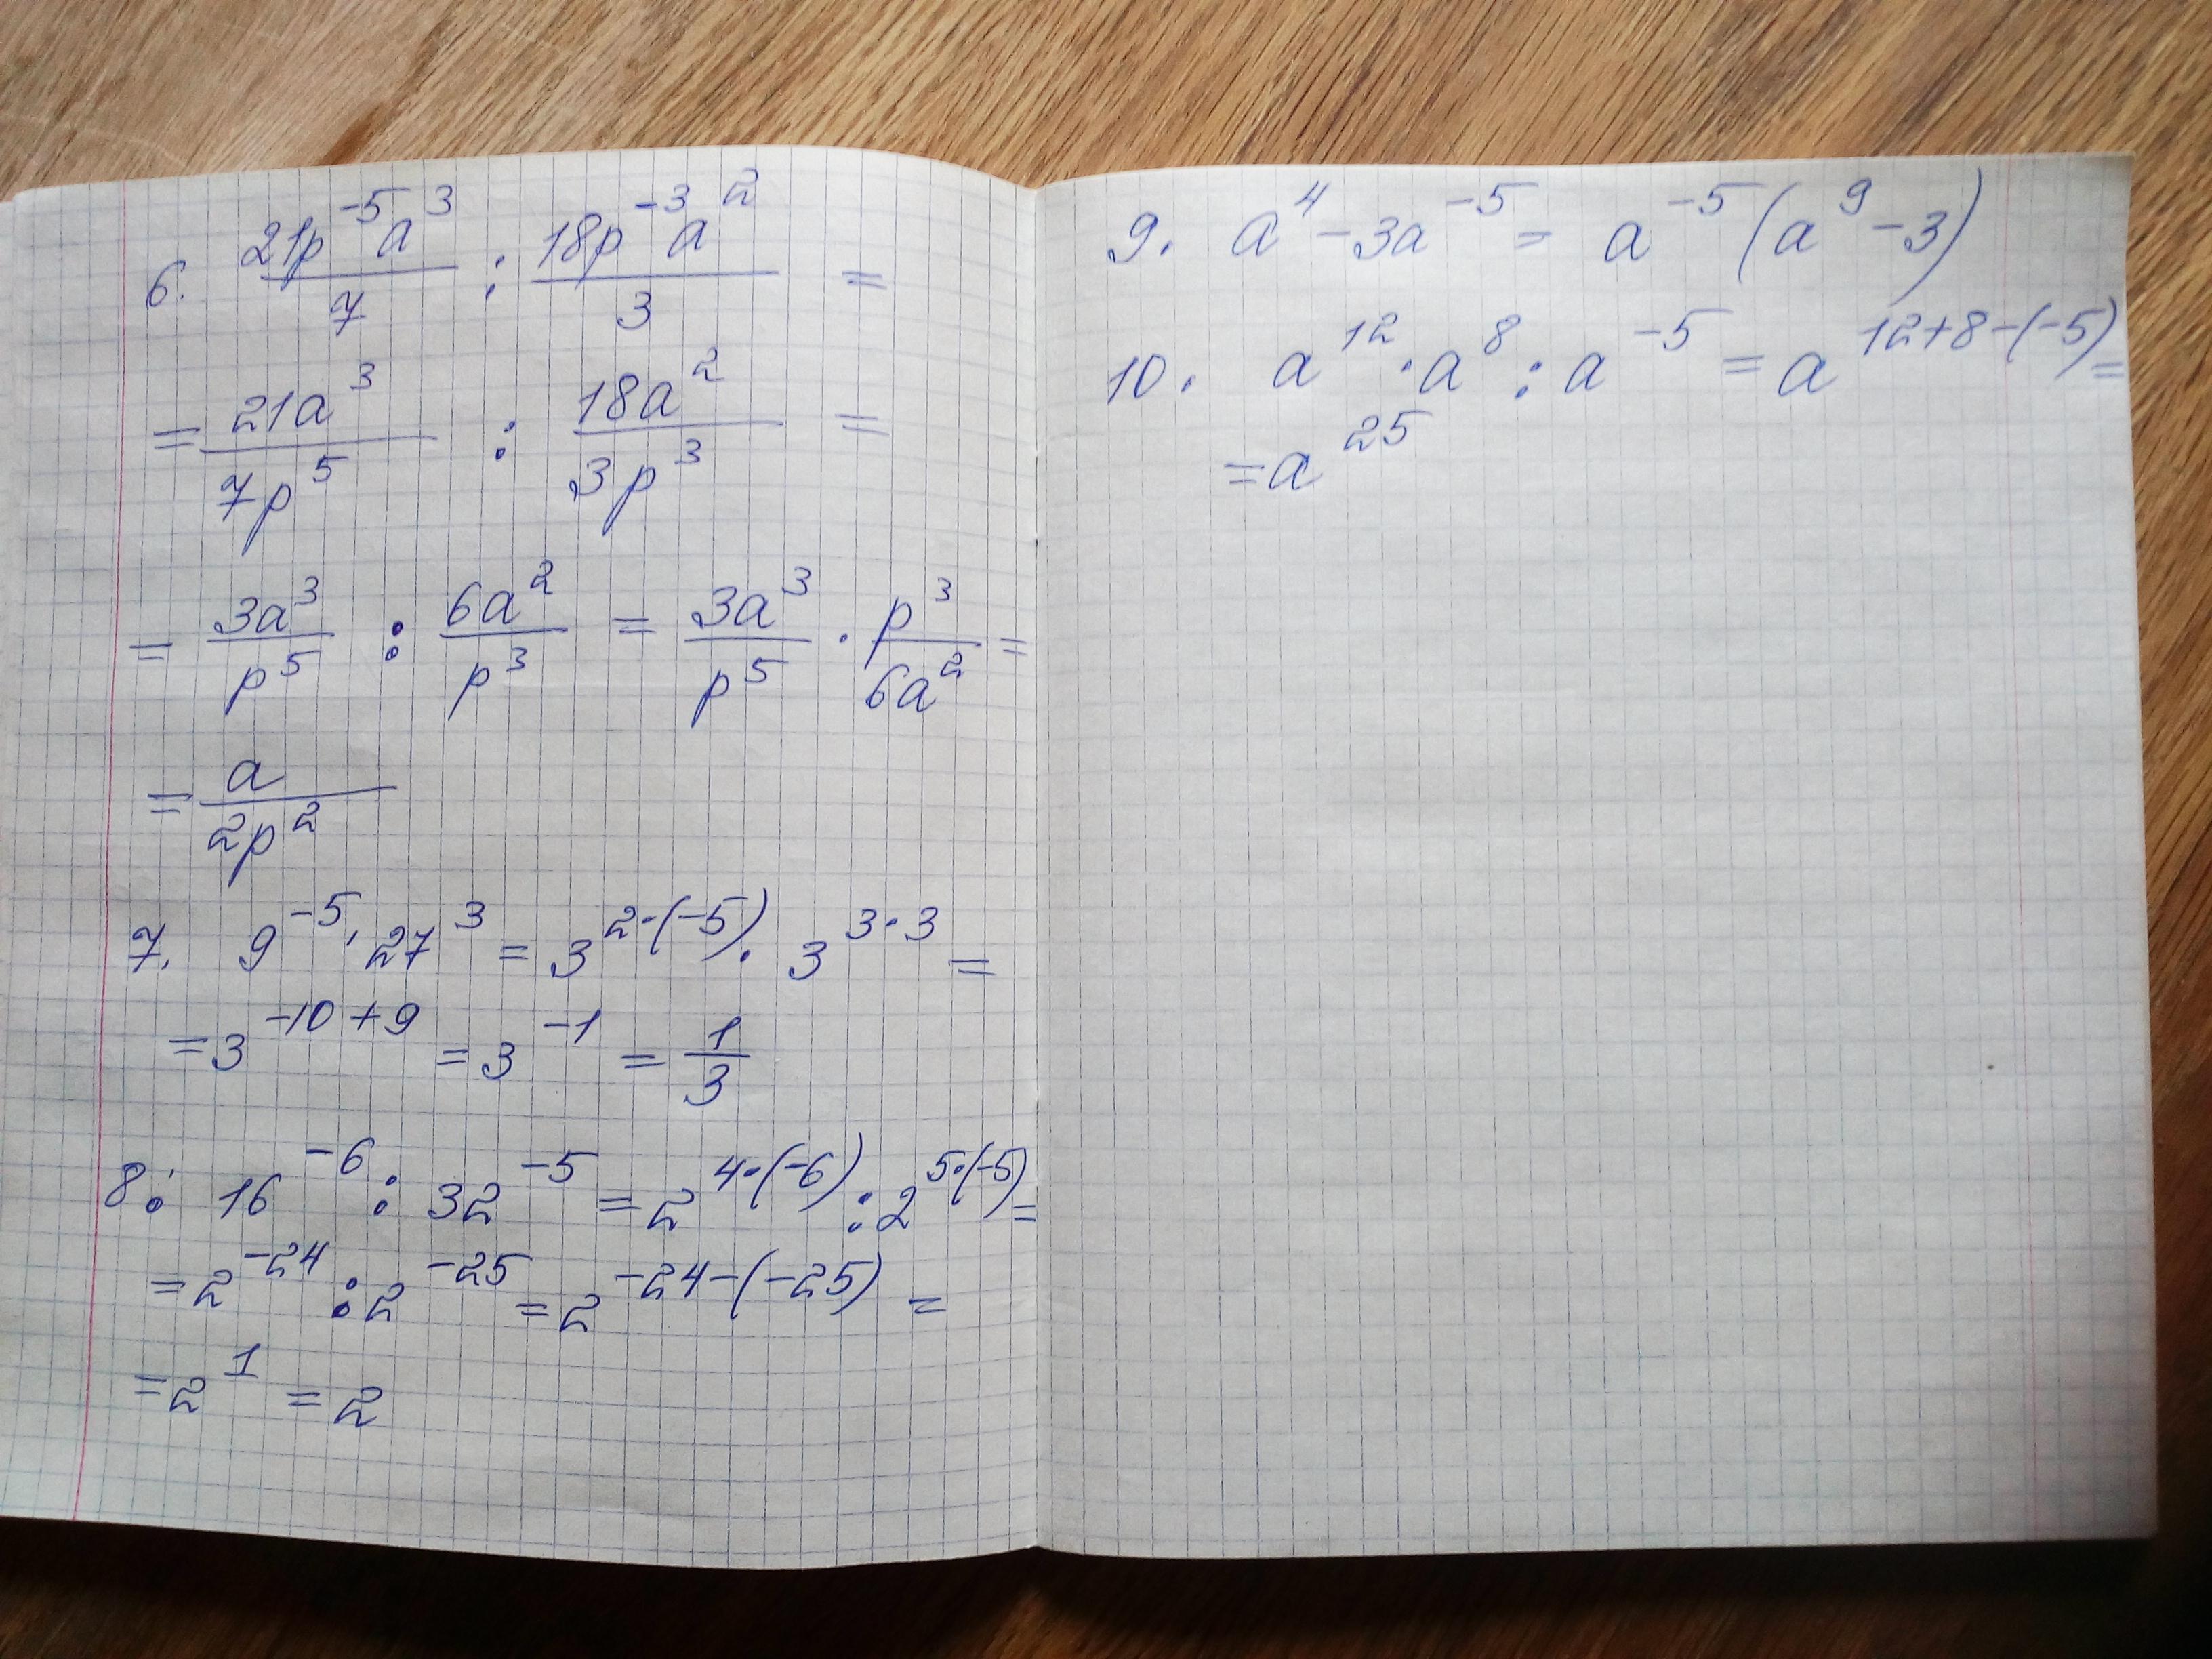 6. \frac{21p^{-5}a^{3}}{7} : \frac{18p^{-3}a^{2}}{3} =
= \frac{21a^{3}}{7p^{5}} : \frac{18a^{2}}{3p^{3}} =
= \frac{3a^{3}}{p^{5}} : \frac{6a^{2}}{p^{3}} = \frac{3a^{3}}{p^{5}} · \frac{p^{3}}{6a^{2}} =
= \frac{a}{2p^{2}}
7. 9^{-5} · 27^{3} = 3^{2·(-5)} · 3^{3·3} =
= 3^{-10+9} = 3^{-1} = \frac{1}{3}
8. 16^{-6} : 32^{-5} = 2^{4·(-6)} : 2^{5·(-5)} =
= 2^{-24} : 2^{-25} = 2^{-24-(-25)} =
= 2^{1} = 2
9. a^{4} - 3a^{-5} = a^{-5}(a^{9} - 3)
10. a^{12} · a^{8} : a^{-5} = a^{12+8-(-5)} =
= a^{25}